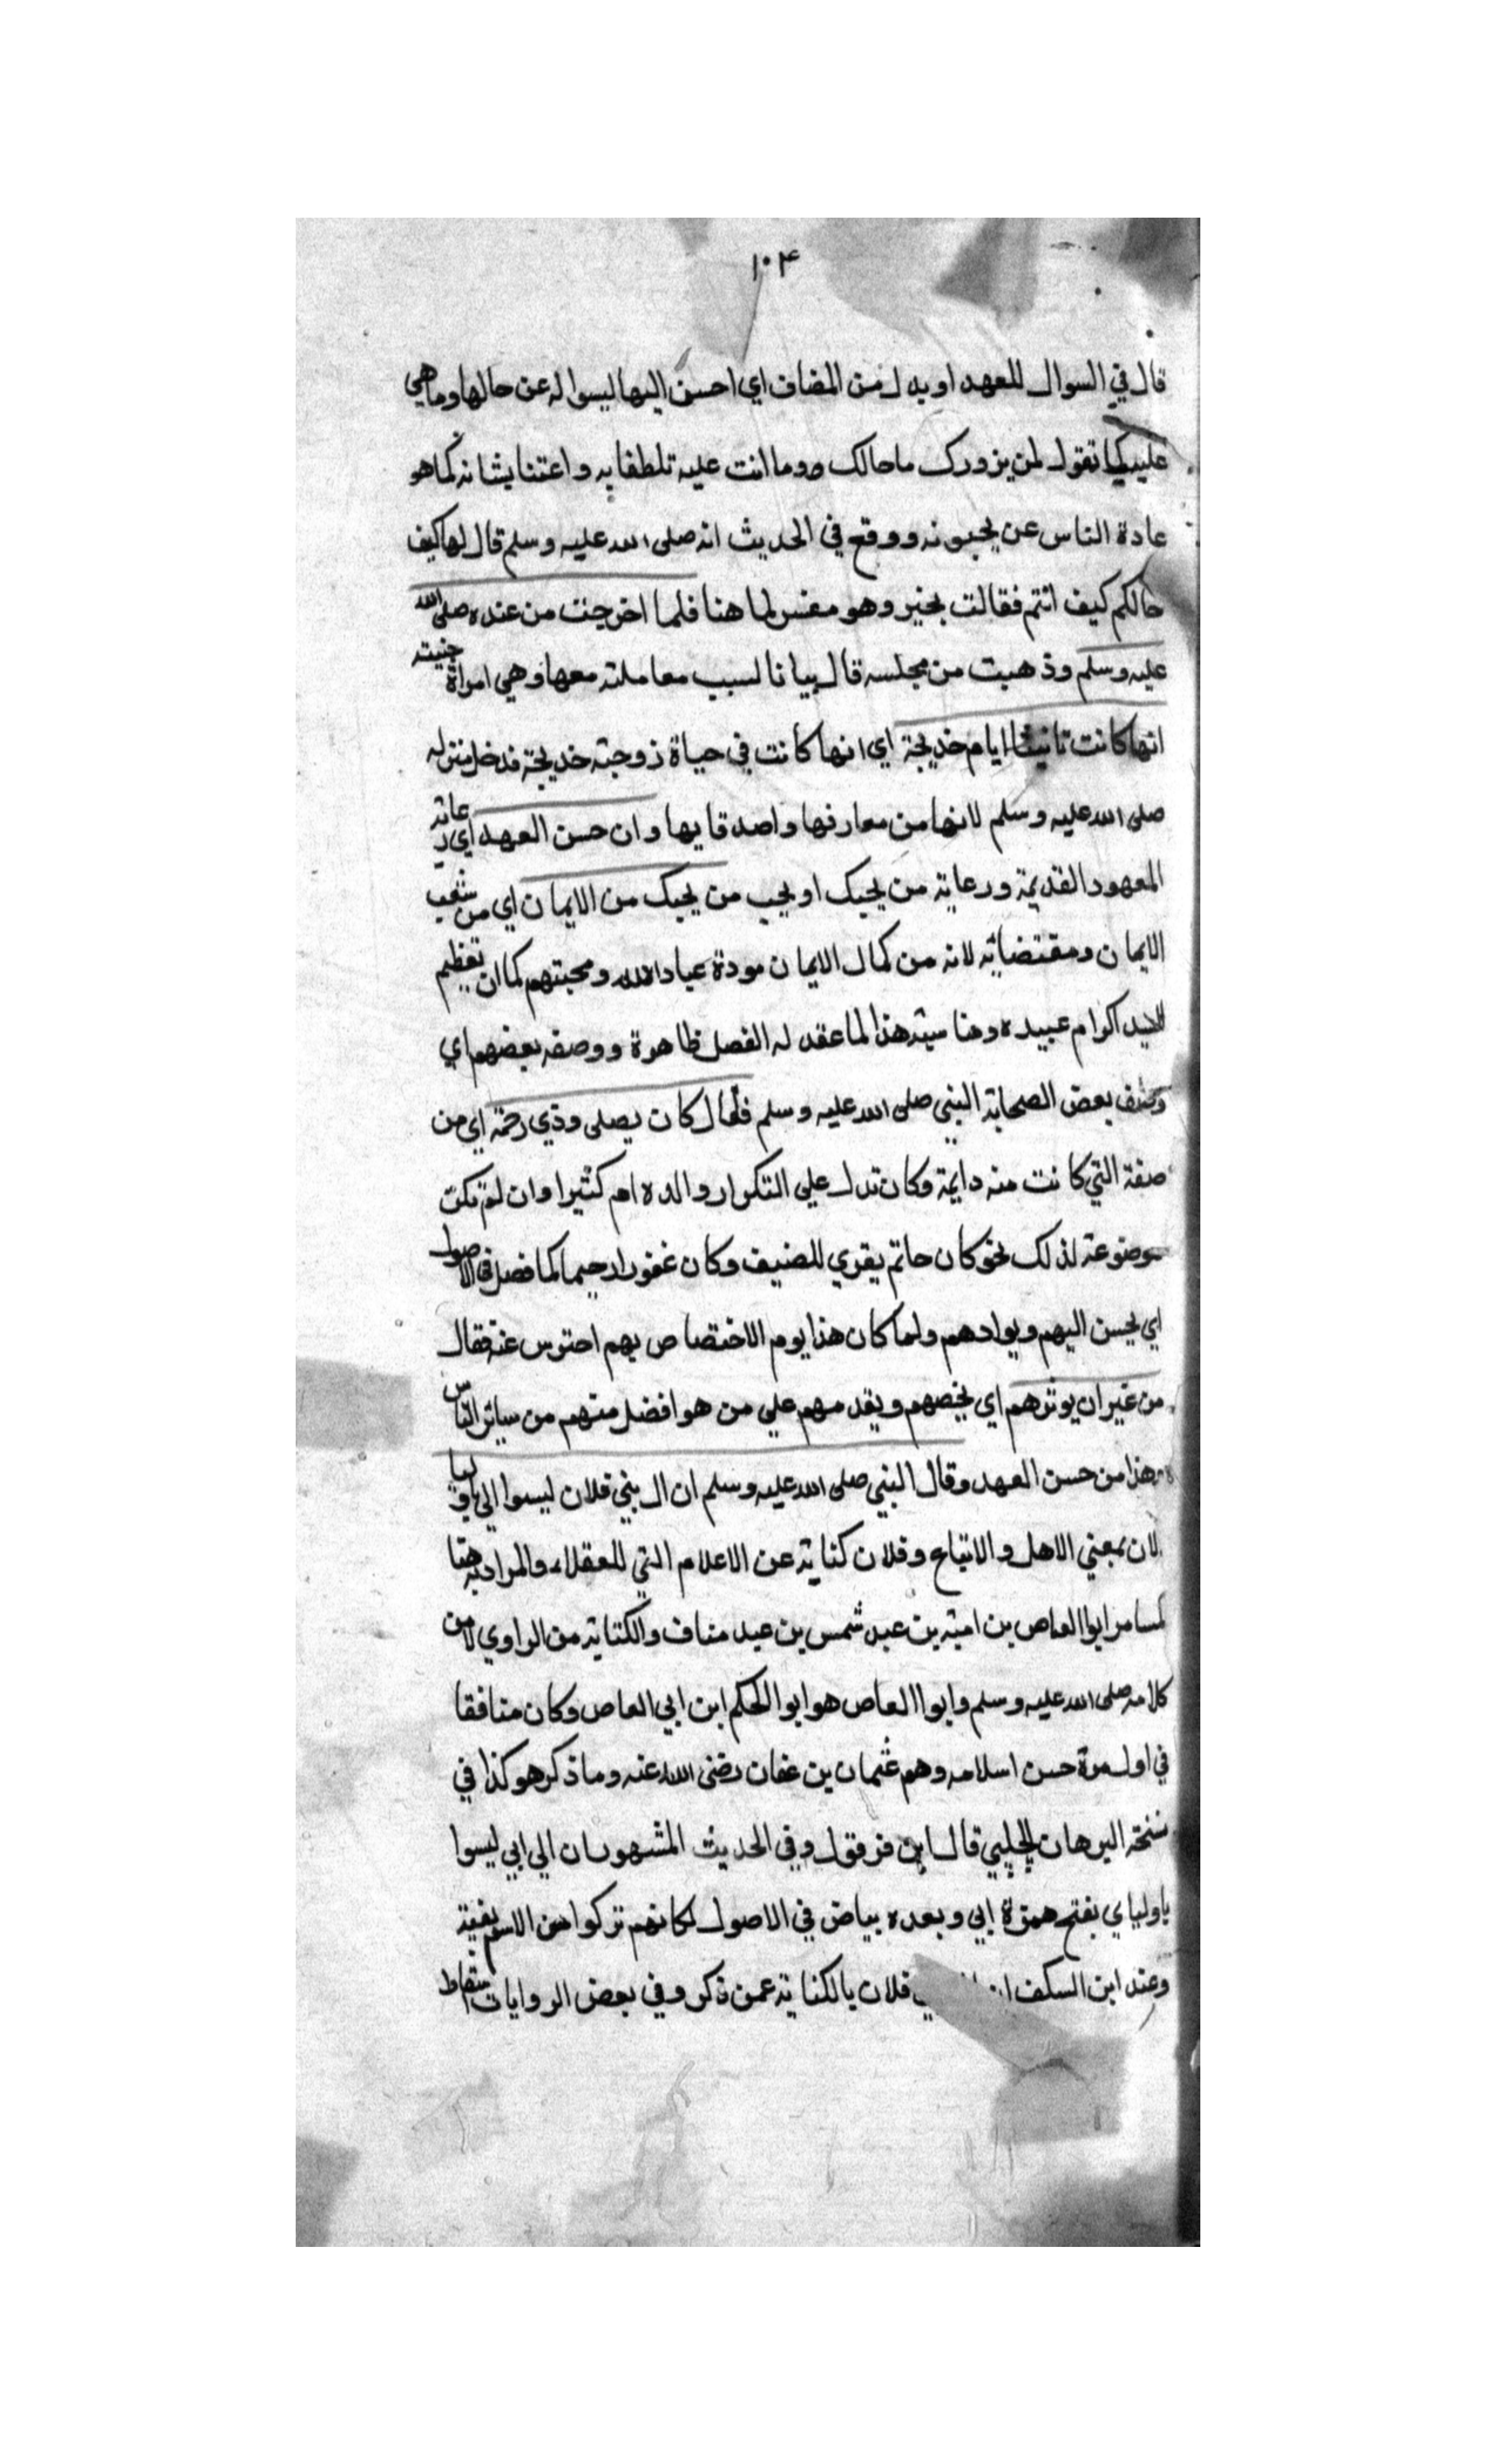 ١٠٤
قال في السوال للعهد او بدل من المضاف اي احسن اليها ليسواله عن حالها وما هي
عليه كما تقول لمن يزورك ما حالك وما انت عليه تلطفا به واعتنا بشانه كما هو
عادة الناس عن يحبونه ووقع في الحديث انه صلى الله عليه وسلم قال لها كيف
حالكم كيف انتم فقالت بخير وهو مفسر لما هنا فلما خرجت من عنده صلى الله
عليه وسلم وذهبت من مجلسه قال بيانا لسبب معاملته معها وهي امراة جنيته
انها كانت تاتينا ايام خديجة اي انها كانت في حياة زوجته خديجة فدخل منزله
صلى الله عليه وسلم لانها من معارفها واصدقايها وان حسن العهد اي رعاية
المعهود القديمة ورعاية من يحبك او يحب من يحبك من الايمان اي من شعب
الايمان ومقتضاته لانه من كمال الايمان مودة عباد الله ومحبتهم كما ان تعظيم
السيد اكرام عبيده ومناسبته هذا لما عقد له الفصل ظاهرة ووصفه بعضهم اي
وصف بعض الصحابة النبي صلى الله عليه وسلم فقال كان يصلى وذي رحمة اي من
صفة التي كانت منه دايمة وكان تدل علي التكرار والدوام كثيرا وان لم تكن
موضوعة لذلك نحو كان حاتم يقري للضيف وكان غفورا رحيما كما فصل في الاصول
اي يحسن اليهم ويوادهم ولما كان هذا يوم الاختصاص بهم احترس عنه فقال
من غير ان يوثرهم اي يخصهم ويقدمهم علي من هو افضل منهم من سائر الناس
وهذا من حسن العهد وقال النبي صلى الله عليه وسلم ان ال بني فلان ليسوا الي باوليا
لان بمعني الاهل والاتباع وفلان كناية عن الاعلام التي للعقلاء والمراد به هنا
كما مر ابوا العاص بن امية بن عبد شمس بن عبد مناف والكناية من الراوي لا من
كلامه صلى الله عليه وسلم وابوا العاص هو ابوا الحكم ابن ابي العاص وكان منافقا
في اول مرة حسن اسلامه وهم عثمان بن عفان رضى الله عنه وما ذكر هو كذا في
نسخة البرهان الحلبي قال ابن قرقول وفي الحديث المشهور ان الي ابي ليسوا
باولياي بفتح همزة ابي وبعده بياض في الاصول لكانهم تركوا من الاسم بقيته
وعند ابن السكف ان فلان بالكناية عمن ذكر وفي بعض الروايات اسقاط